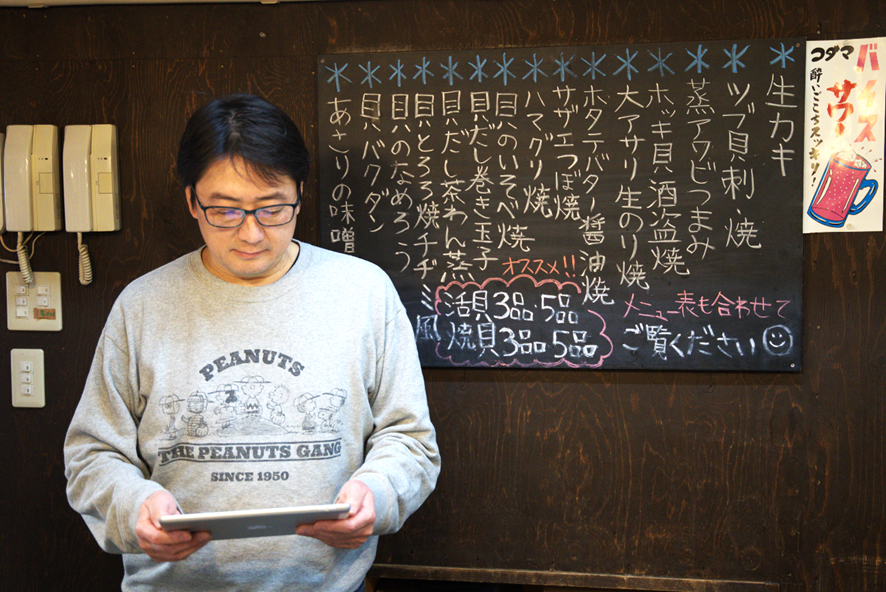 生カキ
ツブ貝刺・焼
蒸アワビつまみ
ホッキ貝酒盗焼
大アサリ生のり焼
ホタテバター醤油焼
サザエつぼ焼
ハマグリ焼
貝のいそべ焼
貝だし巻き玉子
貝だし茶わん蒸
貝とろろ焼チヂミ風
貝のなめろう
貝バクダン
あさりの味噌
オススメ!!
活貝3品・5品
焼貝3品5品
メニュー表も合わせて
ご覧ください
コダマ
バイス
サワー
酔いごこちスッキリ!
PEANUTS
THE PEANUTS GANG
SINCE 1950